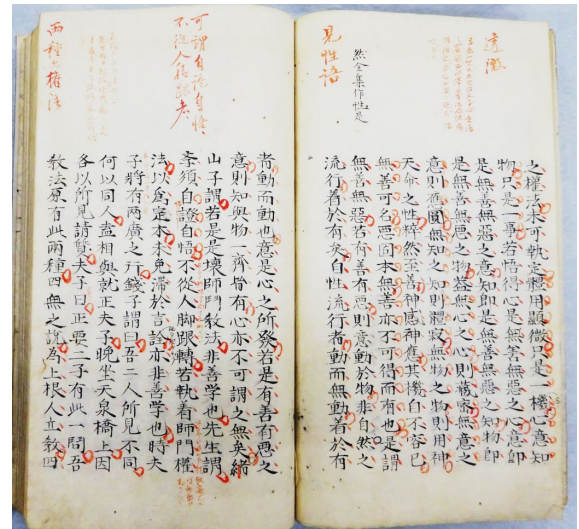 透徹
然全集作性是
見性語
之權法未可執定體用顯微只是一機心意知
物只是一事若悟得心是無善無惡之心意即
是無善無惡之意知即是無善無惡之知物即
是無善無惡之物蓋無心之心則藏密無意之
意則應圓無知之知則體寂無物之物則用神
天命之性粹然至善神感神應其機自不容已
無善可名惡固本無善亦不可得而有也是謂
無善無惡若有善有惡則意動於物非自然之
流行著於有矣自性流行者動而無動着於有
可謂自証自悟
不從人脚跟者
兩種權法
者動而動也意是心之所發若是有善有惡之
意則知與物一齊皆有心亦不可謂之無矣緒
山子謂若是是壞師門教法非善學也先生謂
學須自證自悟不從人脚跟轉若執着師門權
法以為定本未免滯於言詮亦非善學也時夫
子將有兩廣之行錢子謂曰吾二人所見不同
何以同人盍相與就正夫子晚坐天泉橋上因
各以所見請質夫子曰正要二子有此一問吾
教法原有此兩種四無之說為上根人立教四